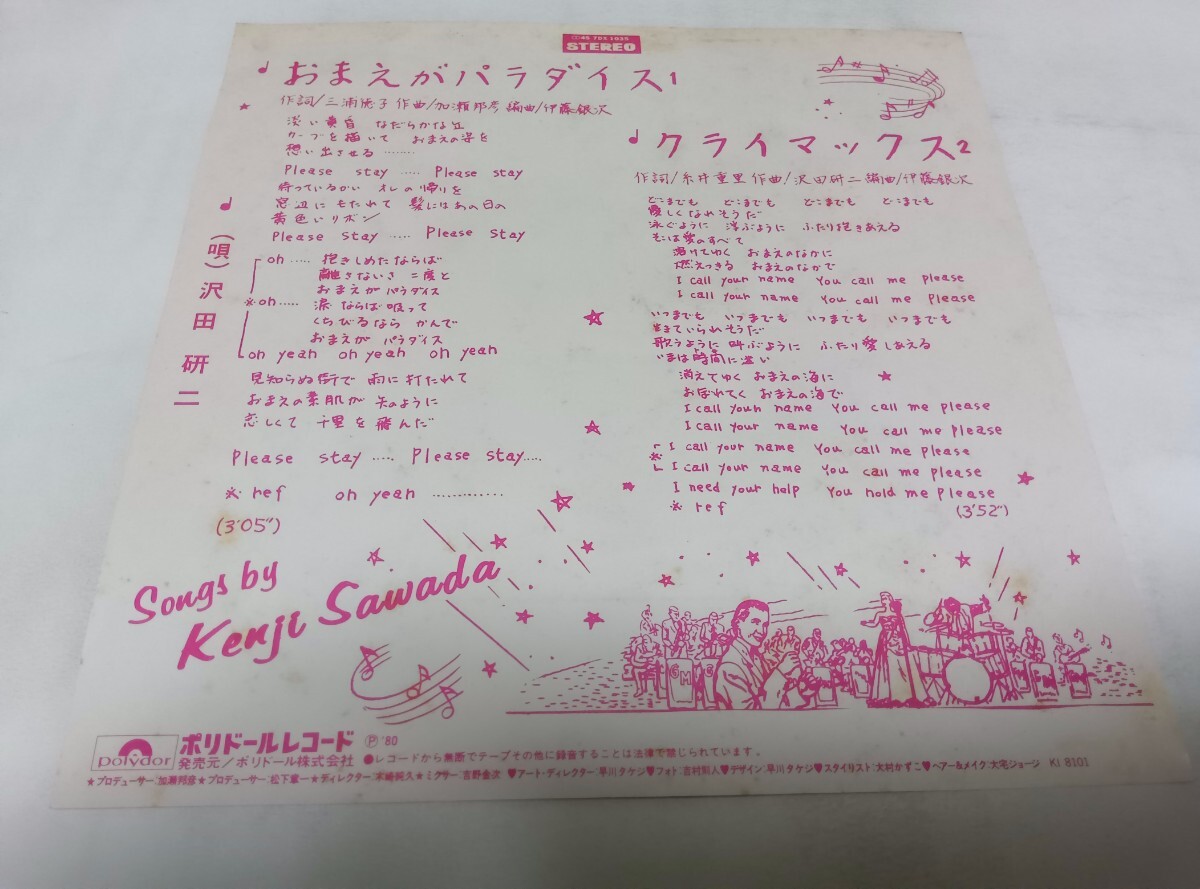 STEREO
おまえがパラダイス1
作詞/三浦徳子 作曲/加瀬邦彦 編曲/伊藤銀次
淡い黄昏 なだらかな丘
カーブを描いて おまえの姿を
想い出させる ………
Please stay ..... Please stay
待っているかい オレの帰りを
窓辺にもたれて 髪にはあの日の
黄色いリボン
Please stay ..... Please stay
(唄)沢田研二
oh ..... 抱きしめたならば
離さないさ 二度と
おまえが パラダイス
※oh ..... 涙ならば吸って
くちびるなら かんで
おまえが パラダイス
oh yeah oh yeah oh yeah
見知らぬ街で 雨に打たれて
おまえの素肌が 矢のように
恋しくて 千里を飛んだ
Please stay ..... Please stay.....
※ ref oh yeah .............
(3'05")
クライマックス2
作詞/糸井重里 作曲/沢田研二 編曲/伊藤銀次
どこまでも どこまでも どこまでも どこまでも
優しくなれそうだ
泳ぐように 浮ぶように ふたり抱きあえる
そこは愛のすべて
溶けてゆく おまえのなかに
燃えつきる おまえのなかで
I call your name You call me please
I call your name You call me please
いつまでも いつまでも いつまでも いつまでも
生きていられそうだ
歌うように 叫ぶように ふたり愛しあえる
いまは時間に遠い
消えてゆく おまえの海に
おぼれてく おまえの海で
I call your name You call me please
I call your name You call me please
「 I call your name You call me please
※
L I call your name You call me please
I need your help You hold me please
※ ref (3'52")
Songs by
Kenji Sawada
GM
polydor
ポリドールレコード Ⓟ'80
発売元/ポリドール株式会社 ●レコードから無断でテープその他に録音することは法律で禁じられています。
★プロデューサー:加瀬邦彦★プロデューサー:松下章一★ディレクター:木崎純久★ミクサー:吉野金次♥アート・ディレクター:早川タケジ♥フォト:吉村則人♥デザイン:早川タケジ♥スタイリスト:大村かずこ♥ヘアー&メイク:大宅ジョージ KI 8101